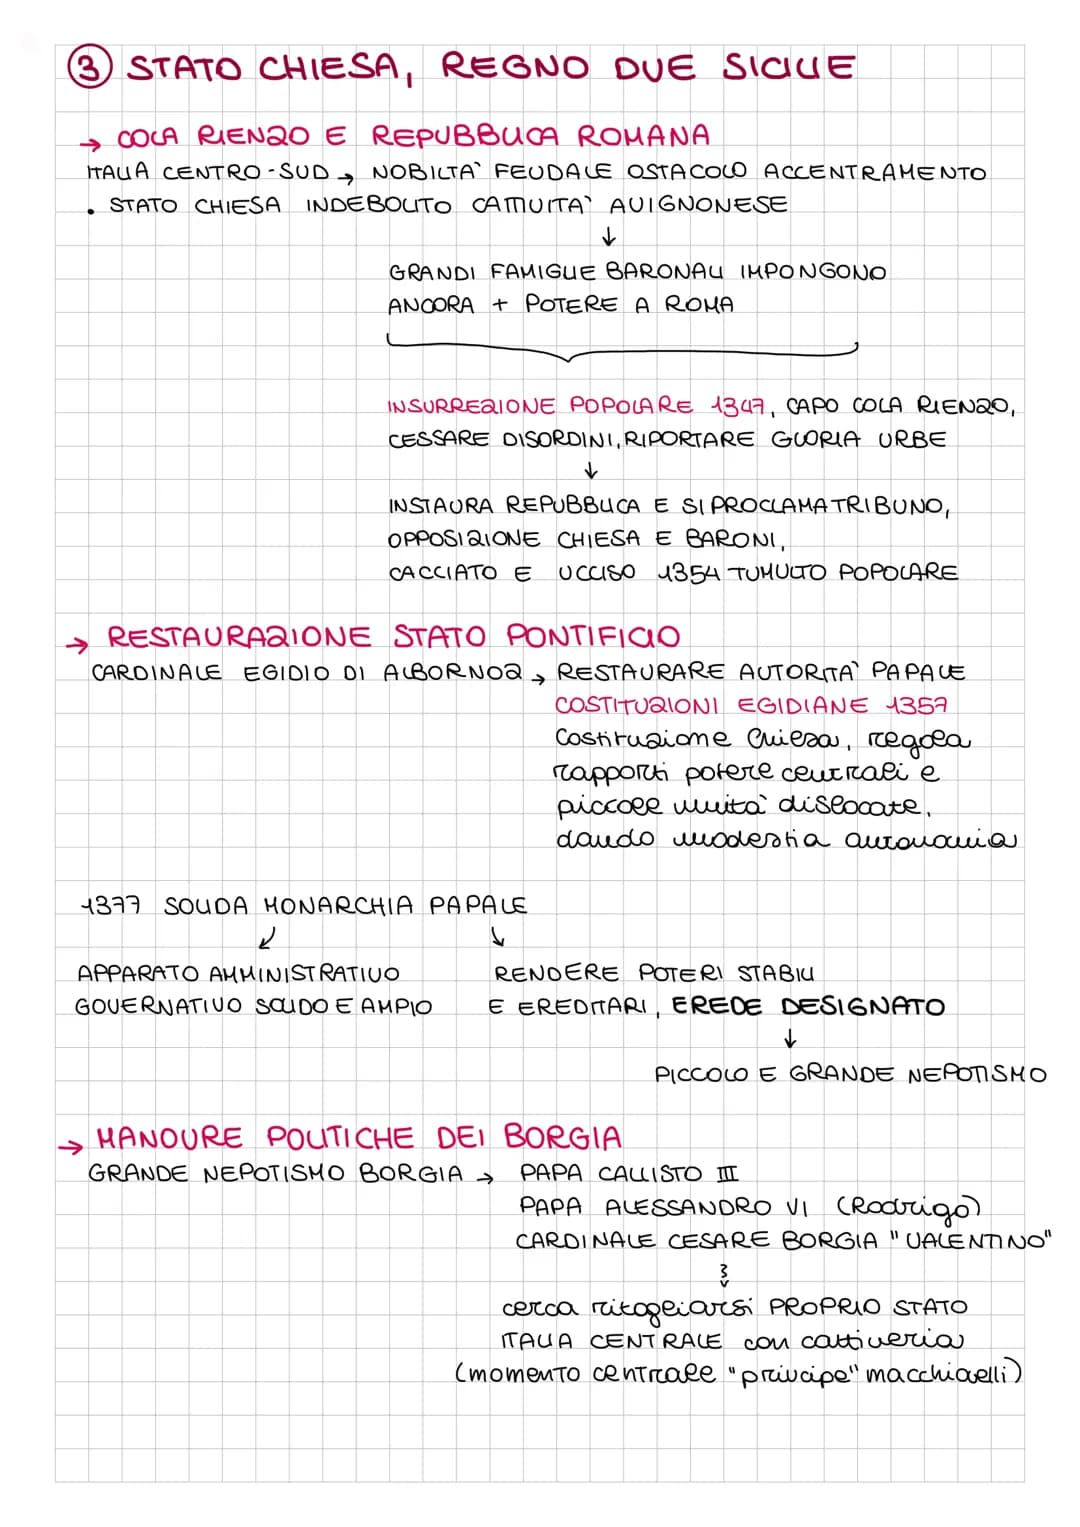 ③ STATO CHIESA, REGNO DUE SICILIE
→ COLA RIENZO E REPUBBLICA ROMANA
ITALIA CENTRO-SUD → NOBILTA' FEUDALE OSTACOLO ACCENTRAMENTO
• STATO CHIESA INDEBOLITO CATTIVITA' AVIGNONESE
↓
GRANDI FAMIGLIE BARONALI IMPONGONO
ANCORA + POTERE A ROMA
INSURREZIONE POPOLARE 1347, CAPO COLA RIENZO,
CESSARE DISORDINI, RIPORTARE GLORIA URBE
↓
INSTAURA REPUBBLICA E SI PROCLAMA TRIBUNO,
OPPOSIZIONE CHIESA E BARONI,
CACCIATO E UCCISO 1354 TUMULTO POPOLARE
→ RESTAURAZIONE STATO PONTIFICIO
CARDINALE EGIDIO DI ALBORNOZ → RESTAURARE AUTORITA' PAPALE
COSTITUZIONI EGIDIANE 1357
Costituzione Chiesa, regola
rapporti potere centrali e
piccole unità dislocate,
dando modestia autonomia
1377 SOLIDA MONARCHIA PAPALE
↙ ↘
APPARATO AMMINISTRATIVO
GOVERNATIVO SOLIDO E AMPIO
RENDERE POTERI STABILI
E EREDITARI, EREDE DESIGNATO
↓
PICCOLO E GRANDE NEPOTISMO
→ MANOVRE POLITICHE DEI BORGIA
GRANDE NEPOTISMO BORGIA → PAPA CALLISTO III
PAPA ALESSANDRO VI (Rodrigo)
CARDINALE CESARE BORGIA "VALENTINO"
cerca ritagliarsi PROPRIO STATO
ITALIA CENTRALE con cattiveria
(momento centrale "principe" macchiavelli)